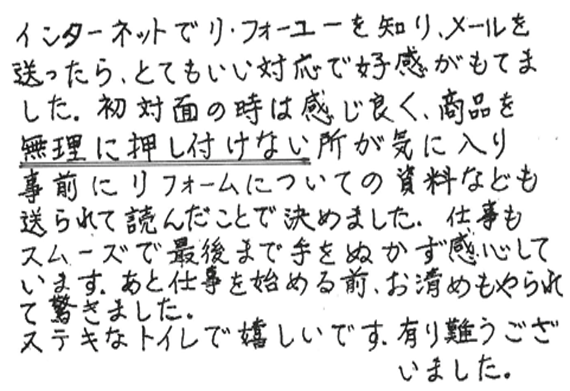 インターネットでリ・フォーユーを知り、メールを
送ったら、とてもいい対応で好感がもてま
した。初対面の時は感じ良く、商品を
無理に押し付けない所が気に入り
事前にリフォームについての資料なども
送られて読んだことで決めました。仕事も
スムーズで最後まで手をぬかず感心して
います。あと仕事を始める前、お清めもやられ
て驚きました。
ステキなトイレで嬉しいです。有り難うござ
いました。